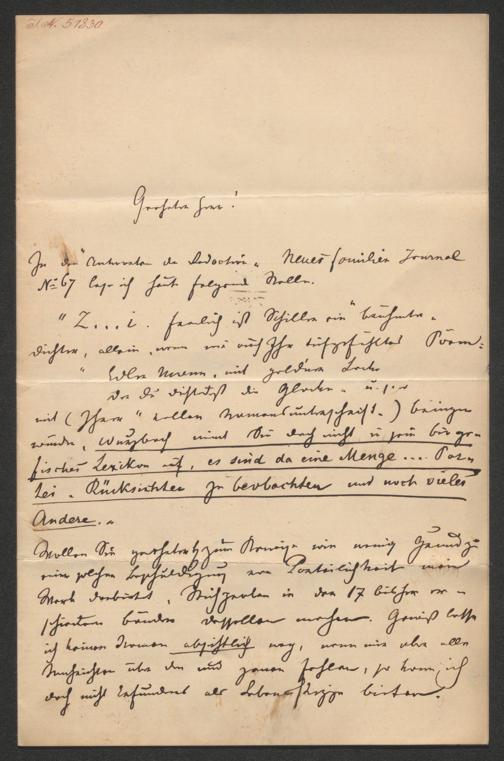 N. 51830
Geehrter Herr!
In den "Antworten der Redaction" Neues Familien Journal
No 67 lese ich heute folgende Stelle.
"Z....i. freilich ist Schiller ein "berühmter"
Dichter, allein, wenn wir auch Ihr tiefgefühltes Poem:
" Edler Mann, mit gold'ner Locke
Der du dichtetest die Glocke " u.s.w
mit (Ihrer " vollen Namensunterschrift ") bringen
würden, Wurzbach nimmt Sie doch nicht in sein biogra-
fisches Lexikon auf, es sind da eine Menge ... Par-
tei - Rücksichten zu beobachten und noch vieles
Andere. "
Wollen Sie zum Beweise wie wenig Grund zu
einer solchen Beschuldigung von Parteilichkeit mein
Werk darbietet, Stichproben in den 17 bisher er-
schienenen Bänden desselben machen. Gewiß lasse
ich keinen Namen absichtlich weg, wenn mir aber alle
Nachrichten über den und jenen fehlen, so kann ich
doch nicht als Lebensskizze bieten.